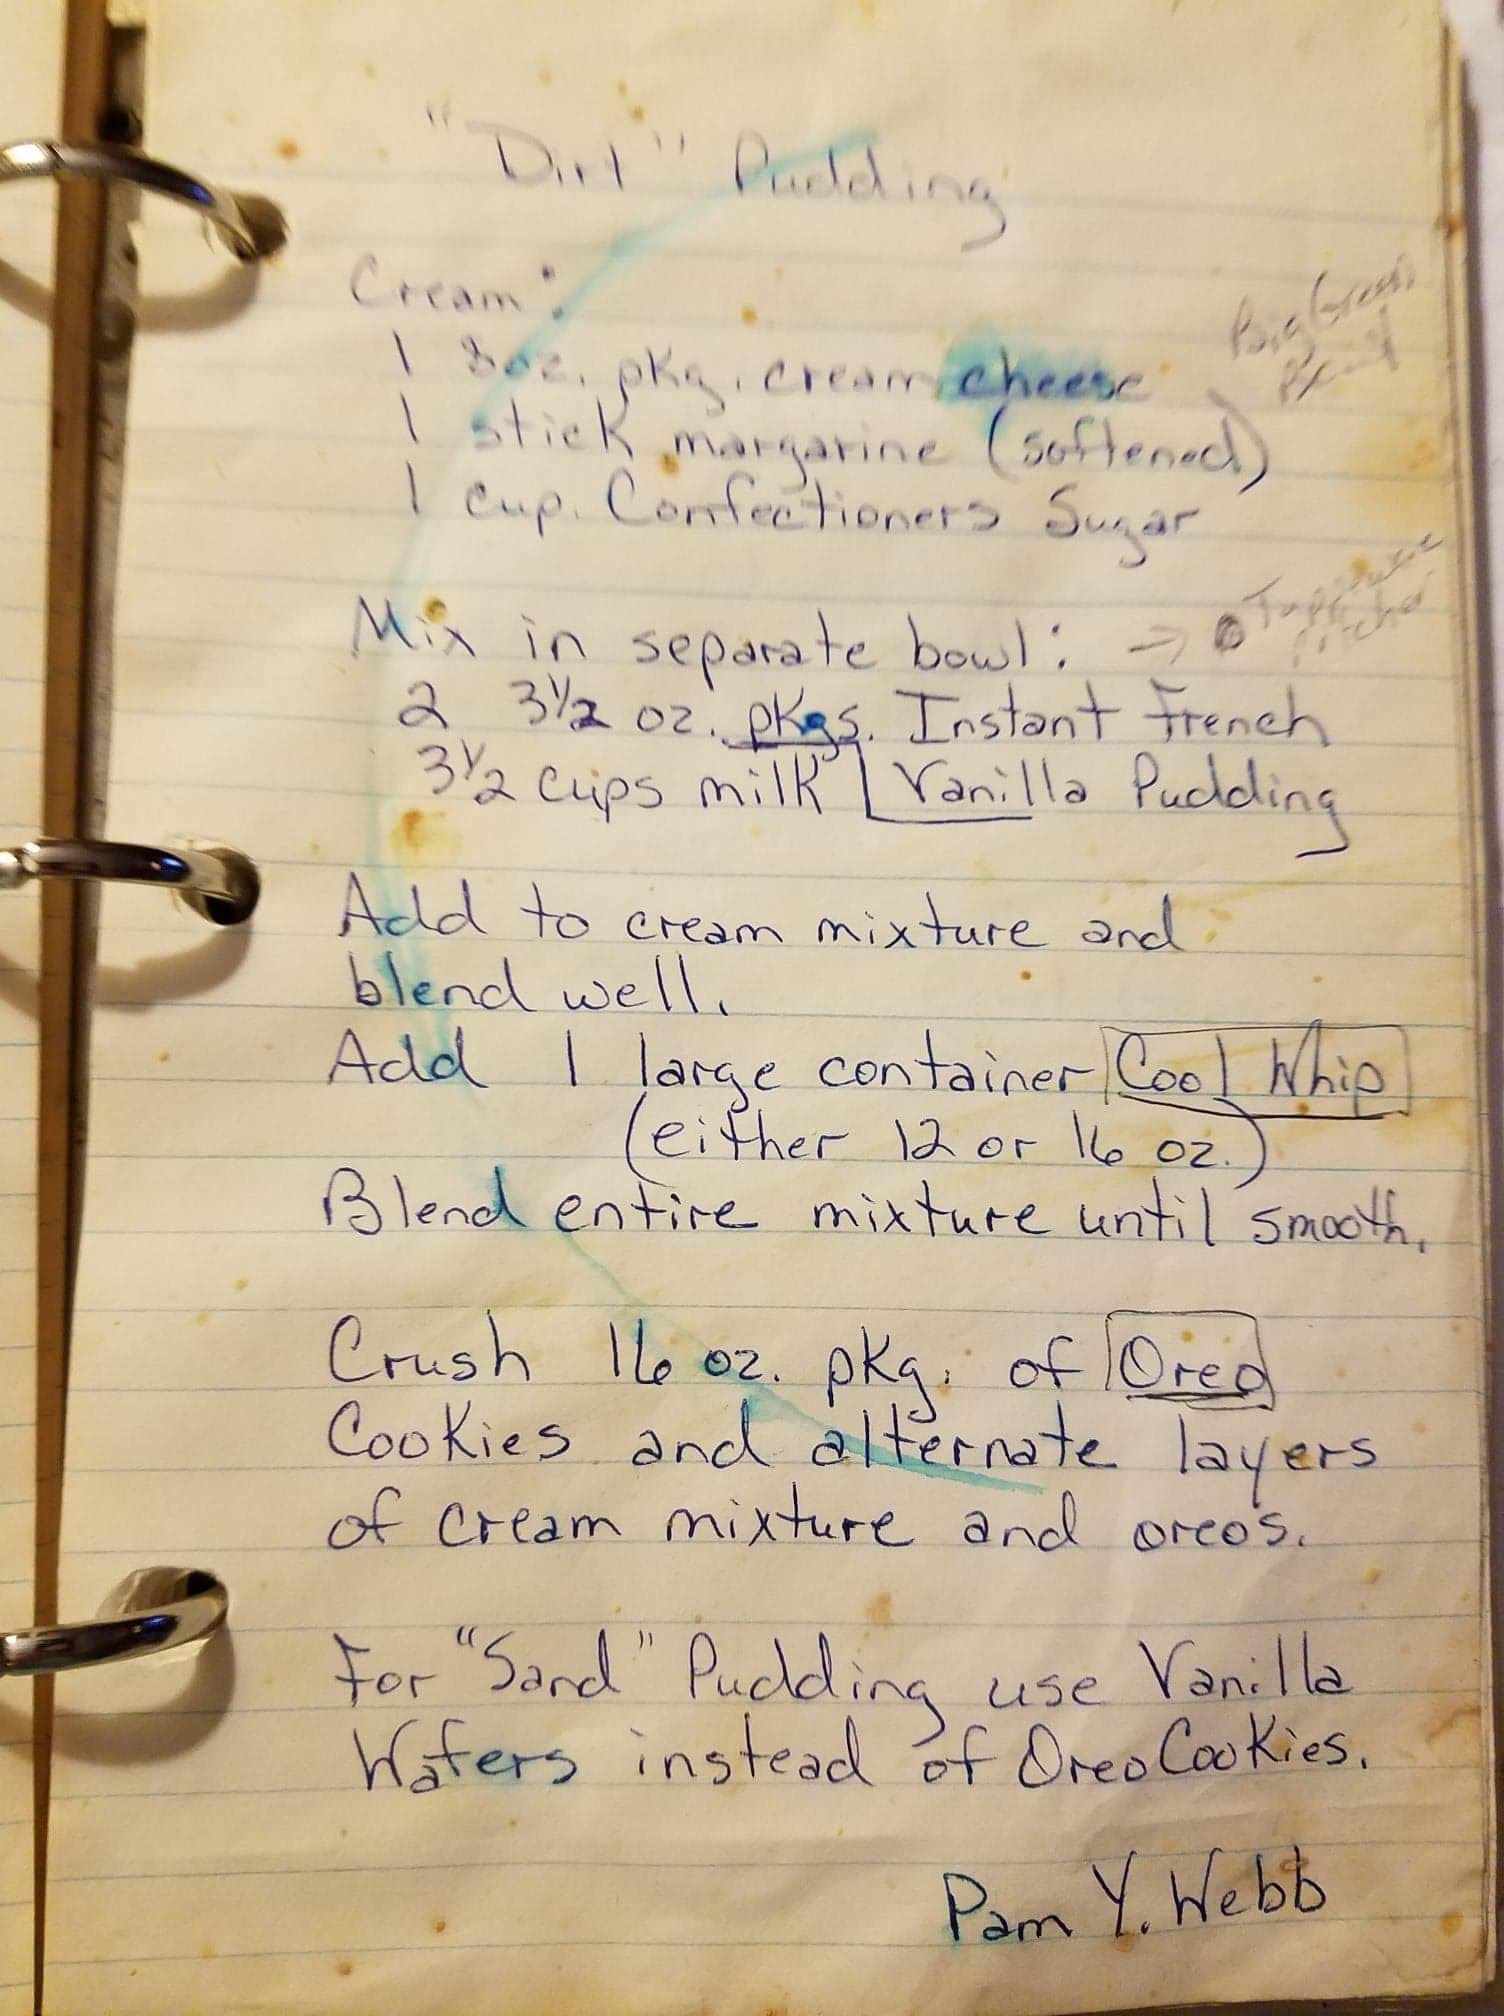 "Dirt" Pudding
Cream:
1 8oz. pkg. cream cheese
Big Green
1 stick margarine (softened)
1 cup. Confectioners Sugar
Mix in separate bowl: →
Tupperware
Pitcher
2 3½ oz. pkgs. Instant French
3½ cups milk Vanilla Pudding
Add to cream mixture and
blend well.
Add 1 large container Cool Whip
(either 12 or 16 oz.)
Blend entire mixture until smooth.
Crush 16 oz. pkg. of Oreo
Cookies and alternate layers
of cream mixture and oreos.
For "Sand" Pudding use Vanilla
Wafers instead of Oreo Cookies.
Pam Y. Webb